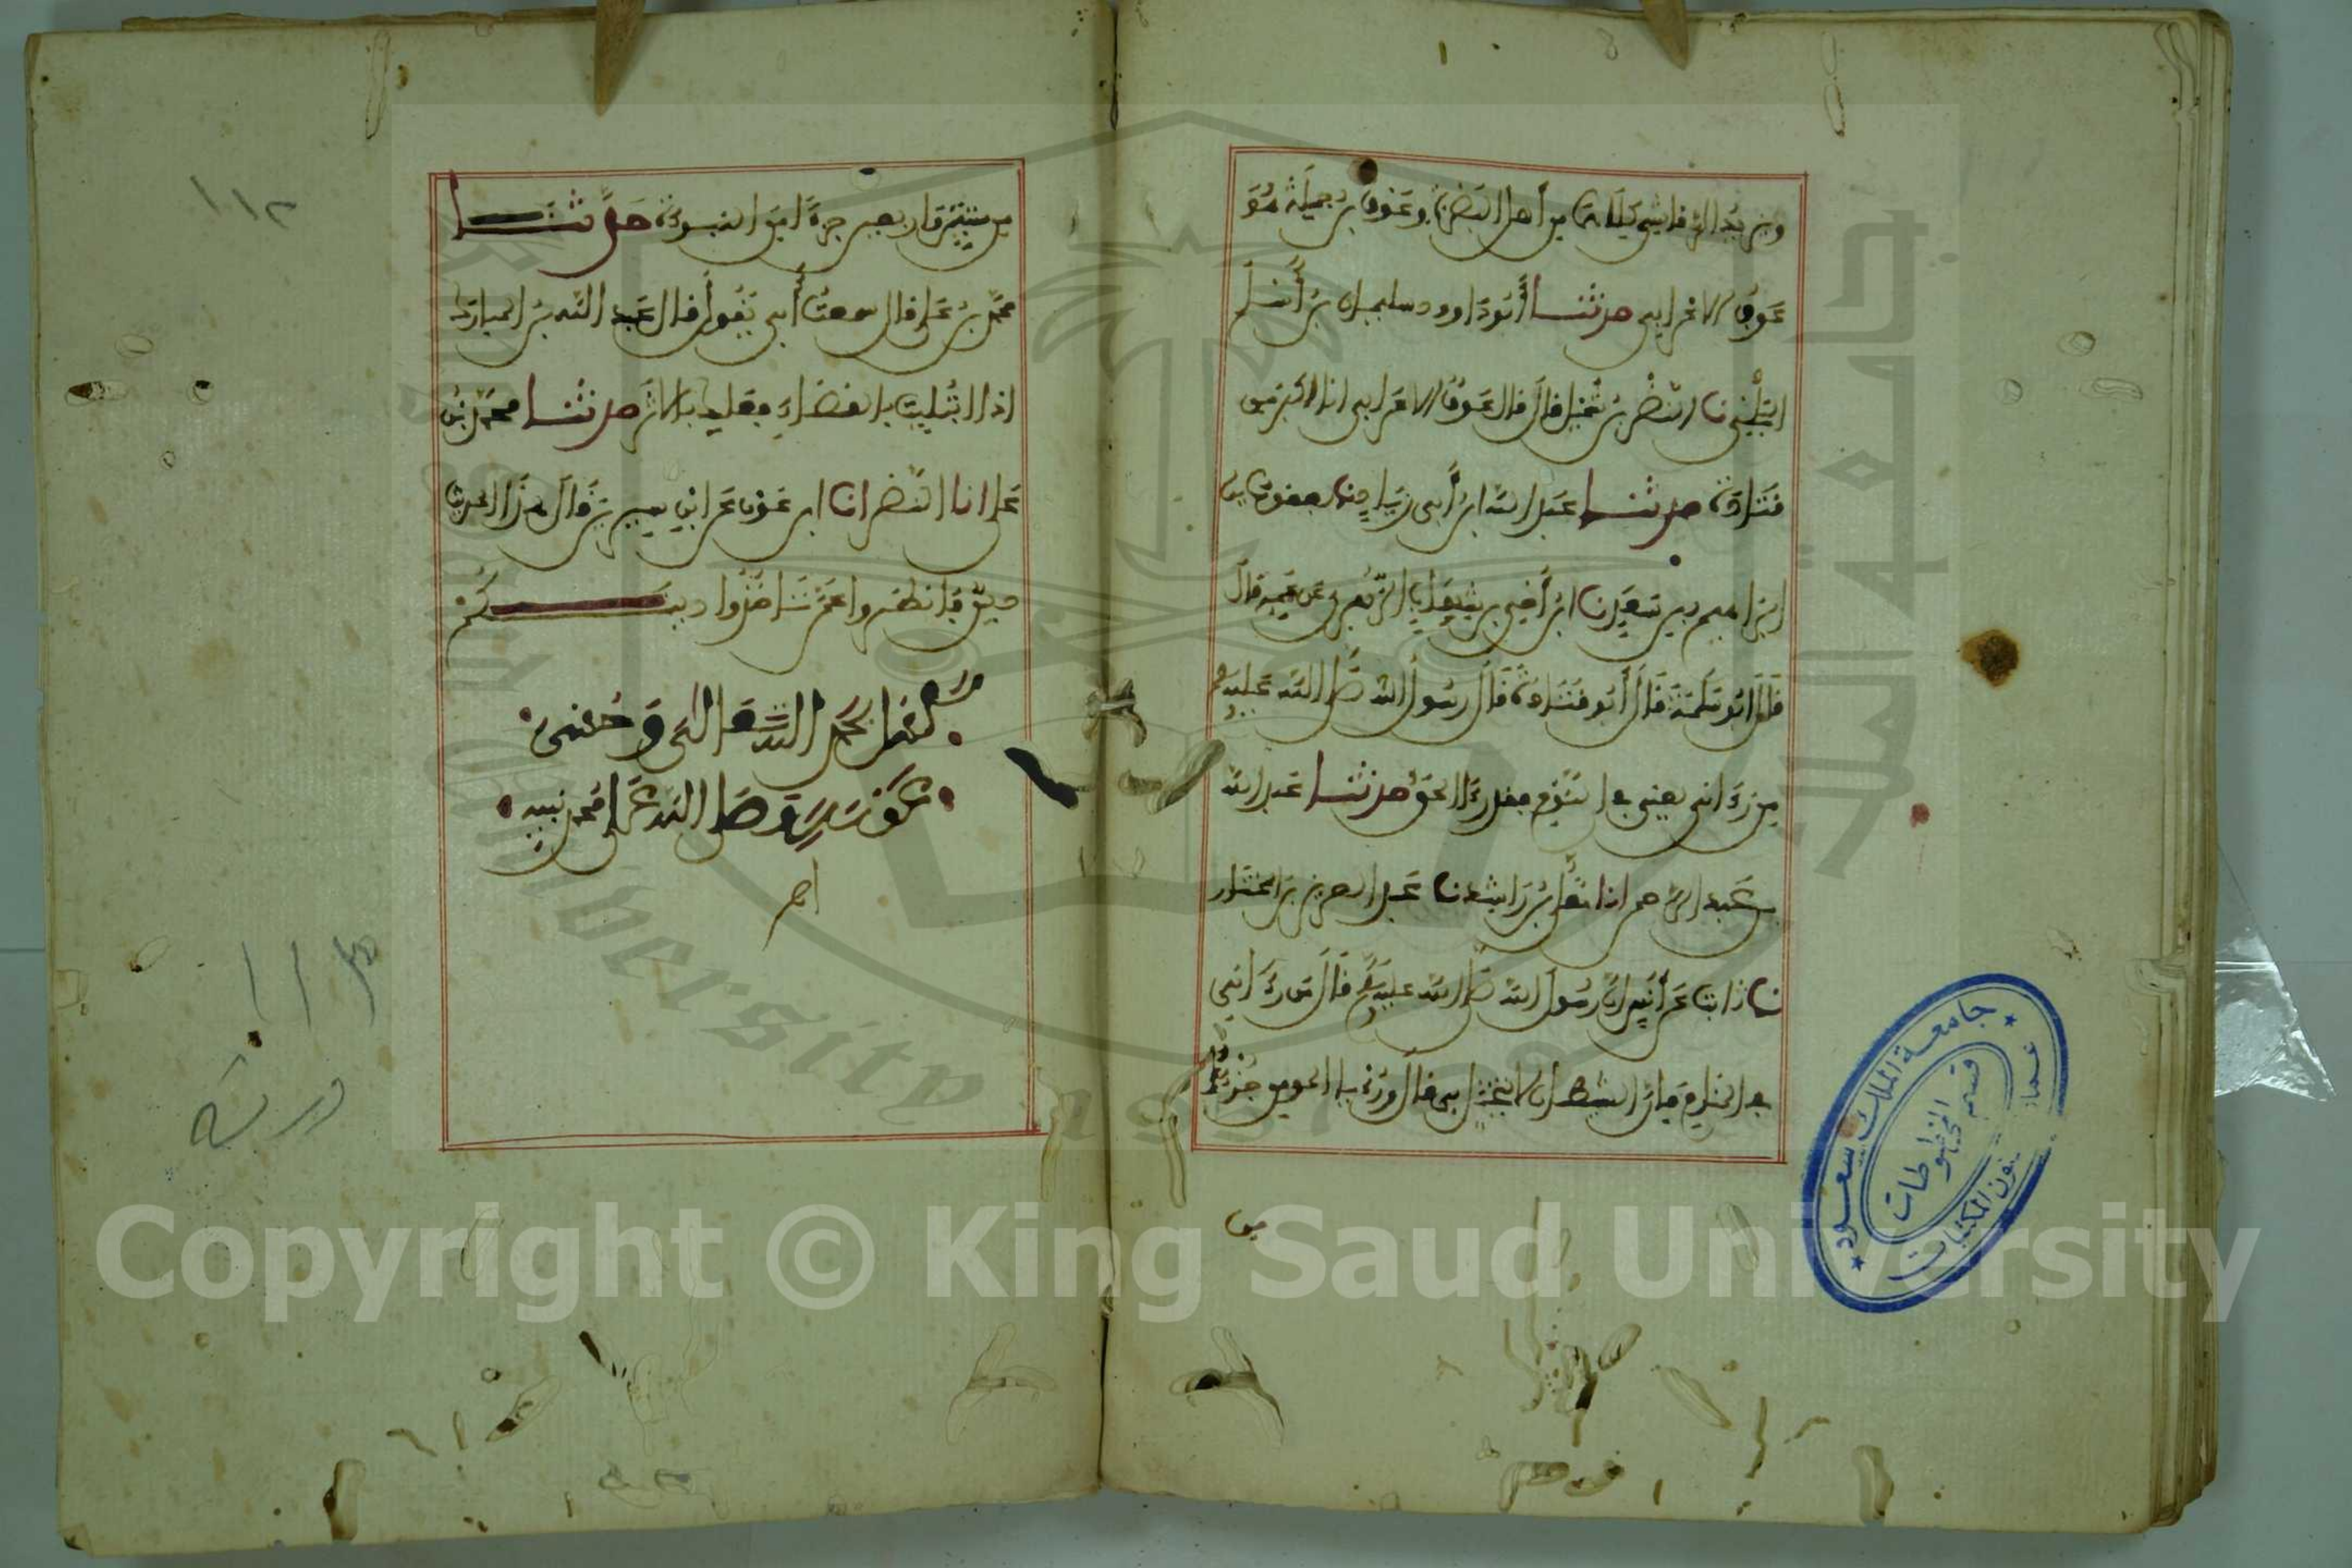 ويزيد الرقاشي كلاهما من أهل البصرة وعوف بن جميلة هو
عوف الاعرابي حدثنا أبو داوود سليمان بن أسلم
البلخي نا النضر بن شميل قال قال عوف الاعرابي انا اكبر من
قتادة حدثنا عبد الله ابن أبي زياد نا يعقوب بن
ابراهيم بن سعد نا ابن أخي بن شهاب الزهري عن عمه قال
قال ابو سلمة قال أبو قتادة قال رسول الله صلى الله عليه
من رءاني يعني في النوم فقد رءا الحق حدثنا عبد الله
بن عبد الرحمن انا معلى بن راشد نا عبد العزيز بن المختار
نا ثابت عن أنس ان رسول الله صلى الله عليه قال من رءاني
في المنام فإن الشيطان لا يتخيل بي قال ورؤيا المومن جزء
من
١١٢
من ستة واربعين جزءا من النبوءة حدثنا
محمد بن علي قال سمعت أبي يقول قال عبد الله بن المبارك
اذا ابتليت بالقضاء فعليك بالاثر حدثنا محمد بن
علي انا النضر انا ابن عون عن ابن سيرين قال هذا الحديث
دين فانظروا عمن تاخذوا دينكم
كمل بحمد الله تعالى وحسن
عونه وصلى الله على محمد نبيه
اهـ
١١٣
ورقة
جامعة الملك سعود
قسم المخطوطات
Copyright © King Saud University